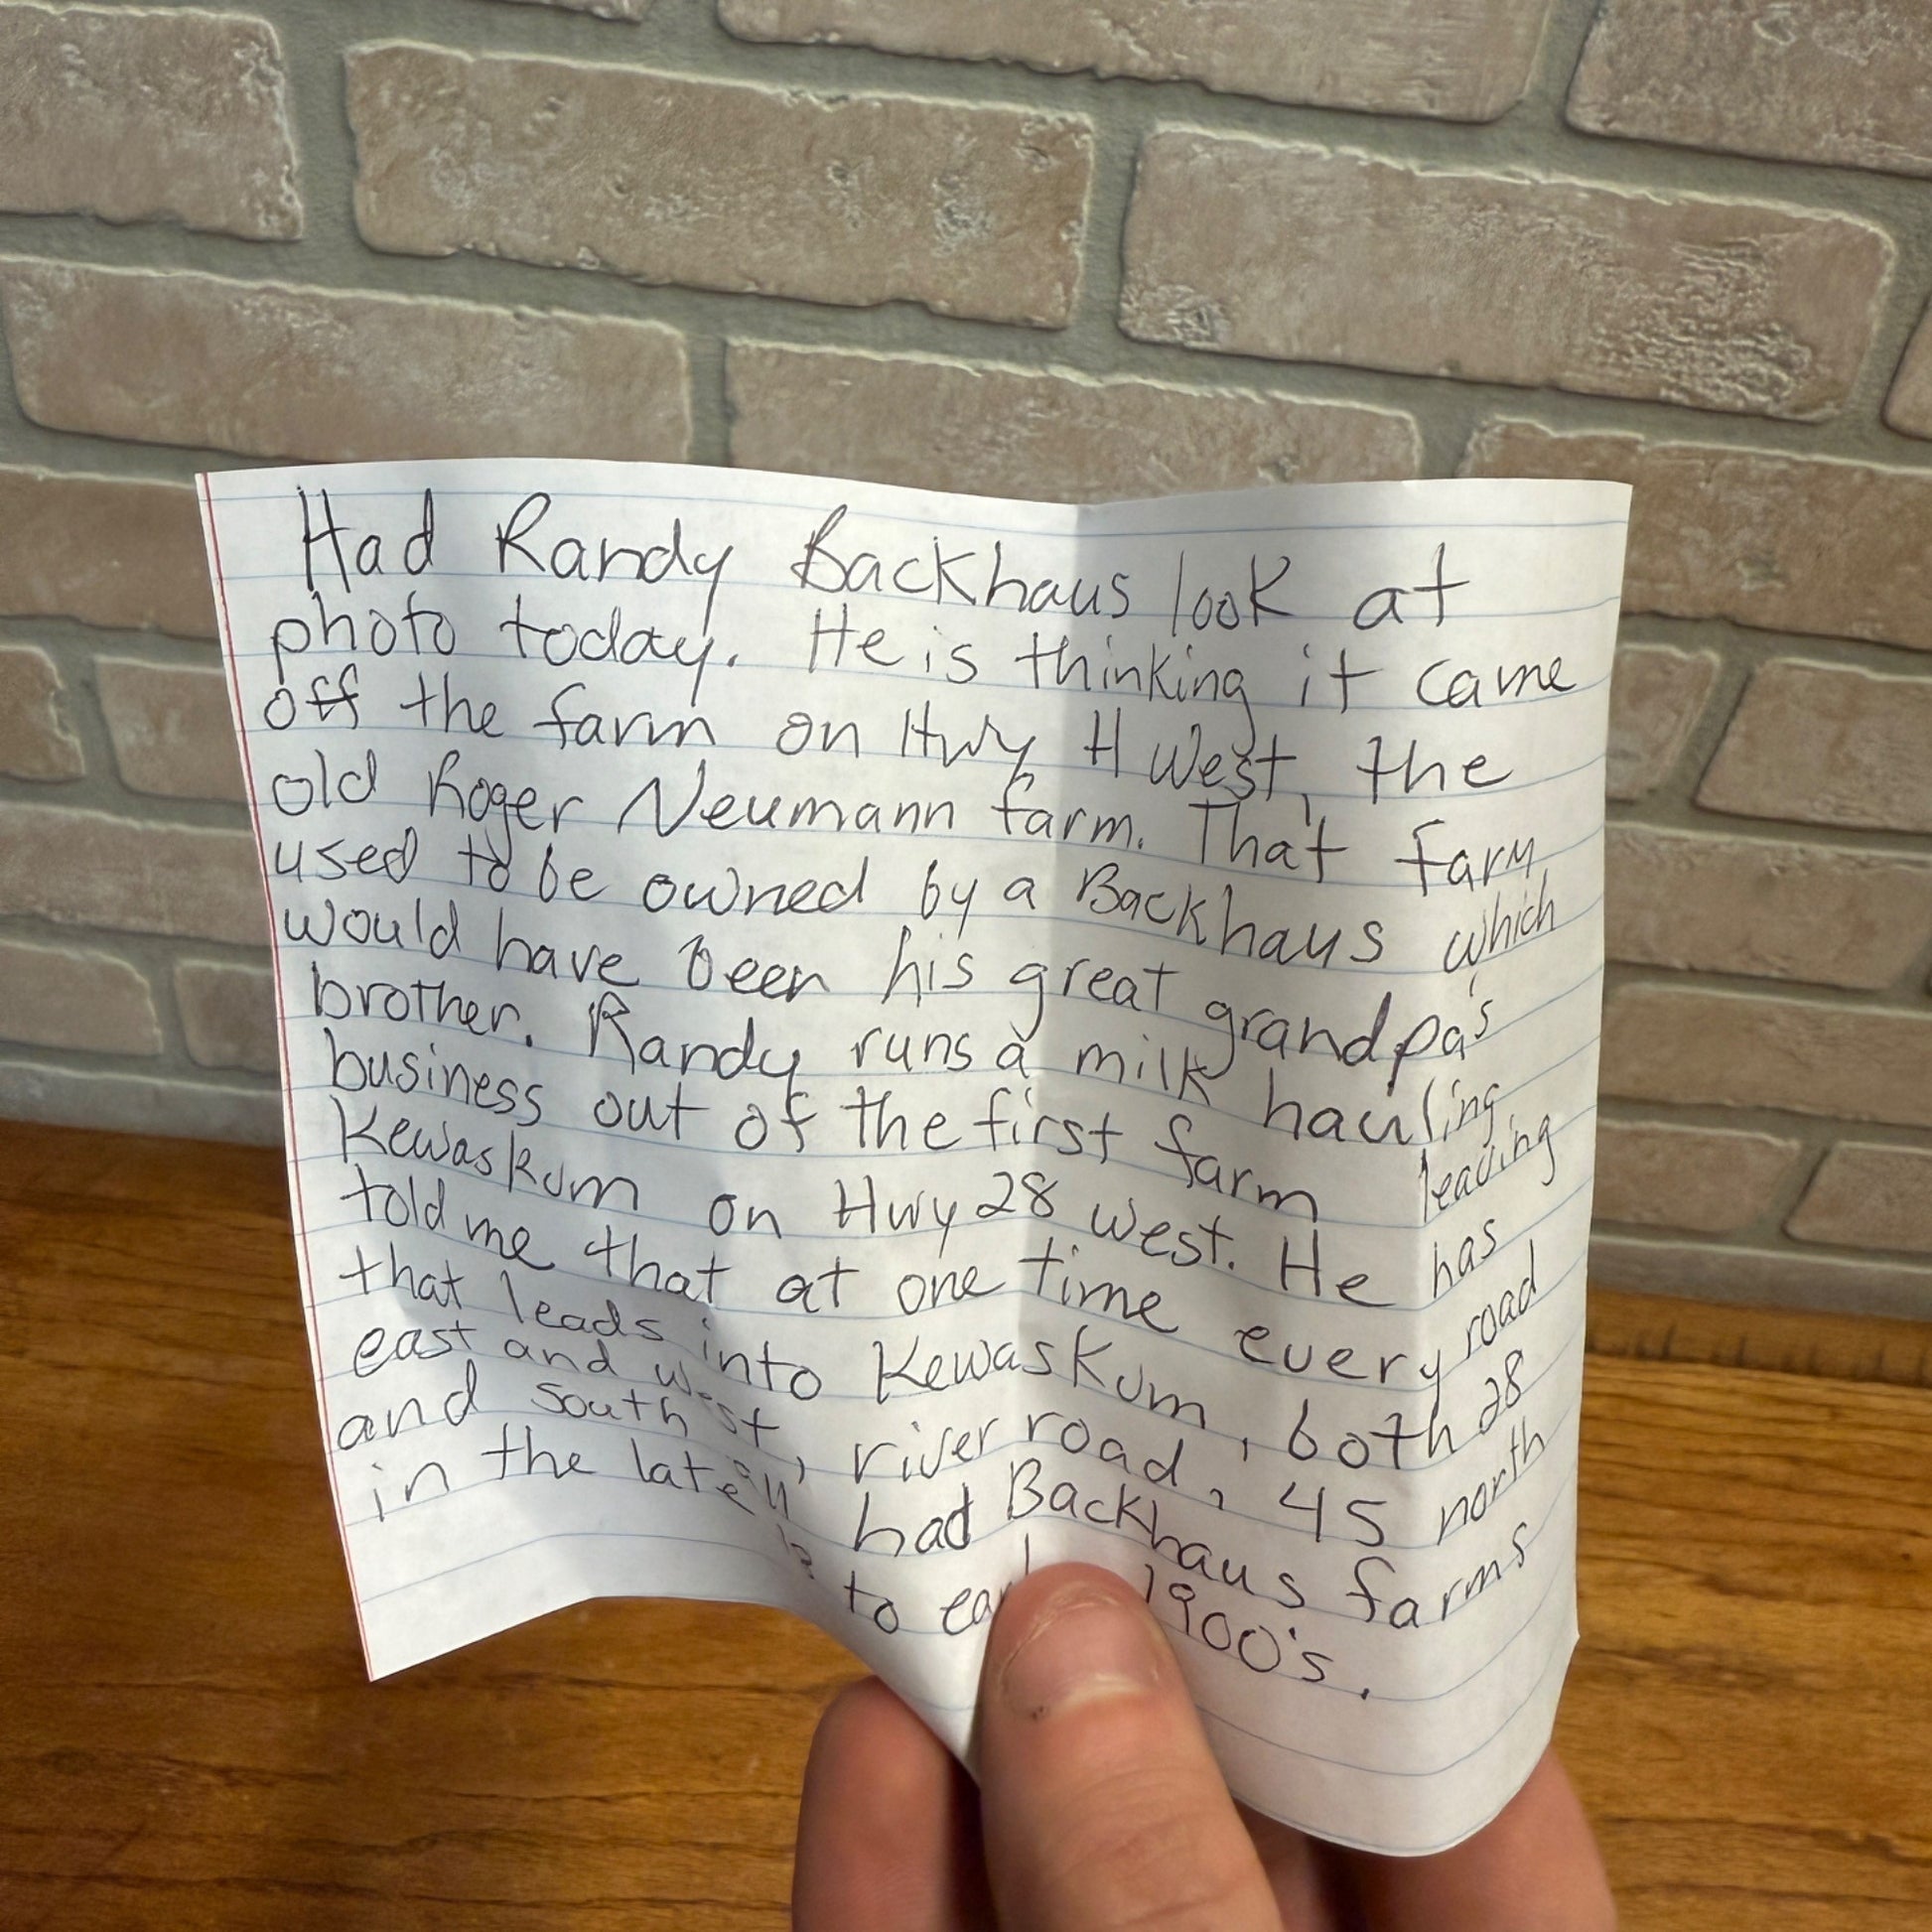 Had Randy Backhaus look at
photo today. He is thinking it came
off the farm on Hwy H West, the
old Roger Neumann farm. That farm
used to be owned by a Backhaus which
would have been his great grandpa's
brother. Randy runs a milk hauling
business out of the first farm leaving
Kewaskum on Hwy 28 west. He has
told me that at one time every road
that leads into Kewaskum, both 28
east and west, river road, 45 north
and south all had Backhaus farms
in the late to 1900's.